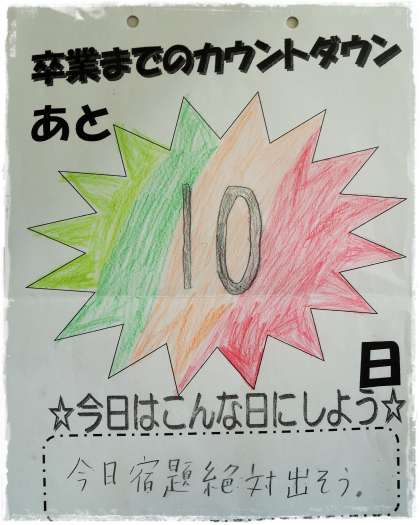 卒業までのカウントダウン
あと
10
日
☆今日はこんな日にしよう☆
今日宿題絶対出そう。